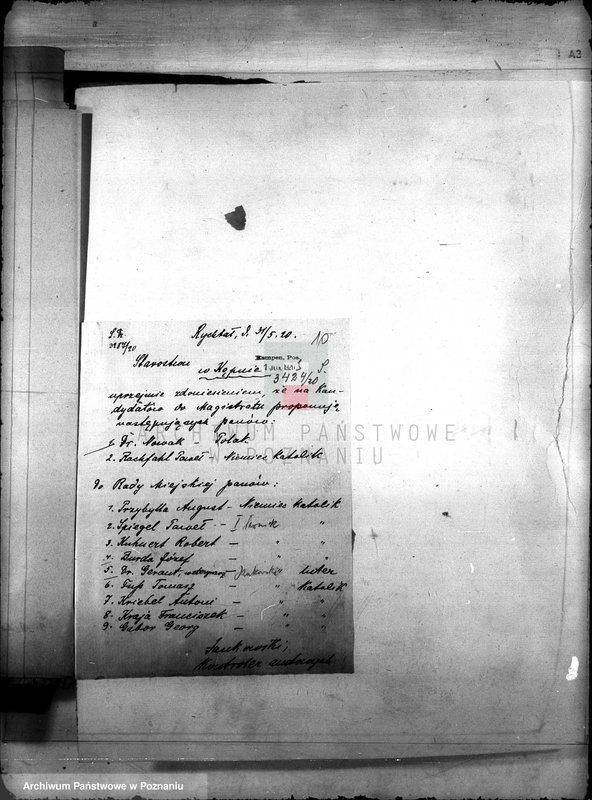 A3
Rychtał, d. 31/5.20. 10
Starostwu
w Kępnie
Kempen, Pos.
S.
3424/20
uprzejmie z doniesieniem, że na kan-
dydatów do Magistratu proponują
następujących panów:
1. Dr. Nowak - Polak
2. Rachfahl Paweł - Niemiec Katolik
do Rady Miejskiej panów:
1. Przybylla August - Niemiec Katolik
2. Spiegel Paweł - "
3. Kuhnert Robert - " "
4. Burda Józef - " "
5. Dr. Gerant, - " luter
6. Tomasz - " Katolik
7. Kriebel Antoni - " "
8. Kraja Franciszek - " "
9. Gabor Georg - " "
Jankowski,
Kontroler
ARCHIWUM PAŃSTWOWE
W POZNANIU
Archiwum Państwowe w Poznaniu